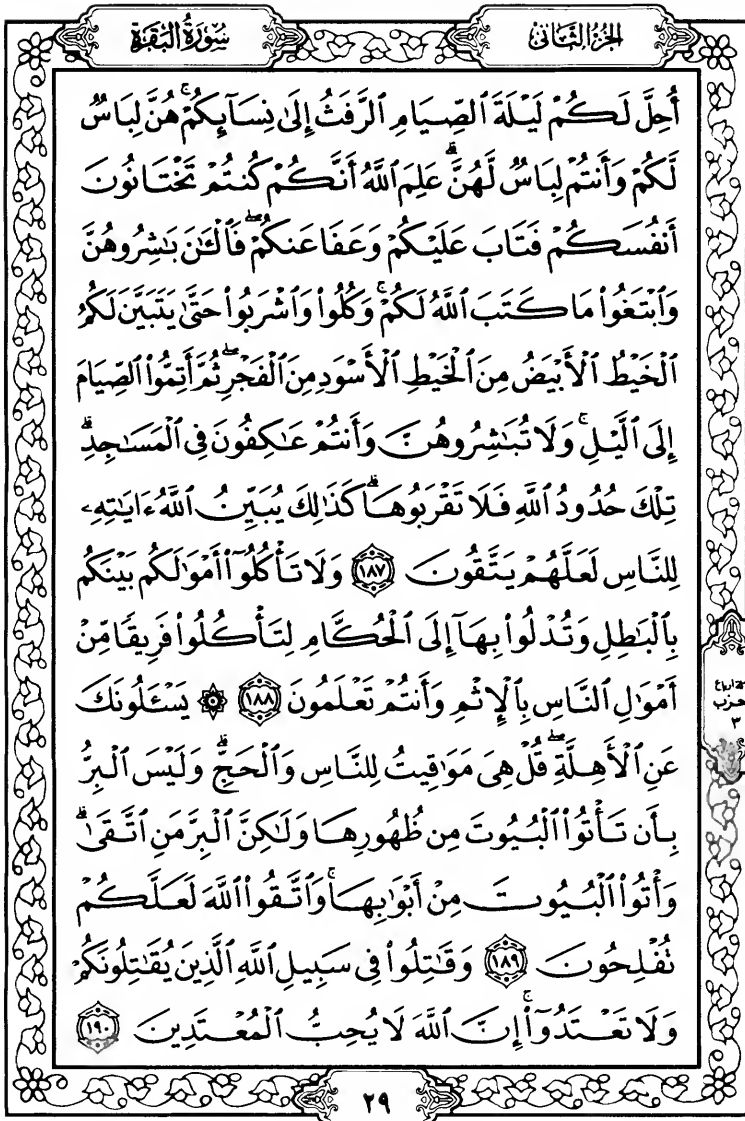 الجُزْءُ الثَّانِي
سُورَةُ البَقَرَةِ
أُحِلَّ لَكُمْ لَيْلَةَ ٱلصِّيَامِ ٱلرَّفَثُ إِلَىٰ نِسَآئِكُمْۚ هُنَّ لِبَاسٌ
لَّكُمْ وَأَنتُمْ لِبَاسٌ لَّهُنَّۗ عَلِمَ ٱللَّهُ أَنَّكُمْ كُنتُمْ تَخْتَانُونَ
أَنفُسَكُمْ فَتَابَ عَلَيْكُمْ وَعَفَا عَنكُمْۖ فَٱلْـَٰٔنَ بَـٰشِرُوهُنَّ
وَٱبْتَغُوا۟ مَا كَتَبَ ٱللَّهُ لَكُمْۚ وَكُلُوا۟ وَٱشْرَبُوا۟ حَتَّىٰ يَتَبَيَّنَ لَكُمُ
ٱلْخَيْطُ ٱلْأَبْيَضُ مِنَ ٱلْخَيْطِ ٱلْأَسْوَدِ مِنَ ٱلْفَجْرِۖ ثُمَّ أَتِمُّوا۟ ٱلصِّيَامَ
إِلَى ٱلَّيْلِۚ وَلَا تُبَـٰشِرُوهُنَّ وَأَنتُمْ عَـٰكِفُونَ فِى ٱلْمَسَـٰجِدِۗ
تِلْكَ حُدُودُ ٱللَّهِ فَلَا تَقْرَبُوهَاۗ كَذَٰلِكَ يُبَيِّنُ ٱللَّهُ ءَايَـٰتِهِۦ
لِلنَّاسِ لَعَلَّهُمْ يَتَّقُونَ ١٨٧ وَلَا تَأْكُلُوٓا۟ أَمْوَٰلَكُم بَيْنَكُم
بِٱلْبَـٰطِلِ وَتُدْلُوا۟ بِهَآ إِلَى ٱلْحُكَّامِ لِتَأْكُلُوا۟ فَرِيقًا مِّنْ
أَمْوَٰلِ ٱلنَّاسِ بِٱلْإِثْمِ وَأَنتُمْ تَعْلَمُونَ ١٨٨ ۞ يَسْـَٔلُونَكَ
عَنِ ٱلْأَهِلَّةِۖ قُلْ هِىَ مَوَٰقِيتُ لِلنَّاسِ وَٱلْحَجِّۗ وَلَيْسَ ٱلْبِرُّ
بِأَن تَأْتُوا۟ ٱلْبُيُوتَ مِن ظُهُورِهَا وَلَـٰكِنَّ ٱلْبِرَّ مَنِ ٱتَّقَىٰۗ
وَأْتُوا۟ ٱلْبُيُوتَ مِنْ أَبْوَٰبِهَاۚ وَٱتَّقُوا۟ ٱللَّهَ لَعَلَّكُمْ
تُفْلِحُونَ ١٨٩ وَقَـٰتِلُوا۟ فِى سَبِيلِ ٱللَّهِ ٱلَّذِينَ يُقَـٰتِلُونَكُمْ
وَلَا تَعْتَدُوٓا۟ۚ إِنَّ ٱللَّهَ لَا يُحِبُّ ٱلْمُعْتَدِينَ ١٩٠
أرباع
حزب
٣
٢٩